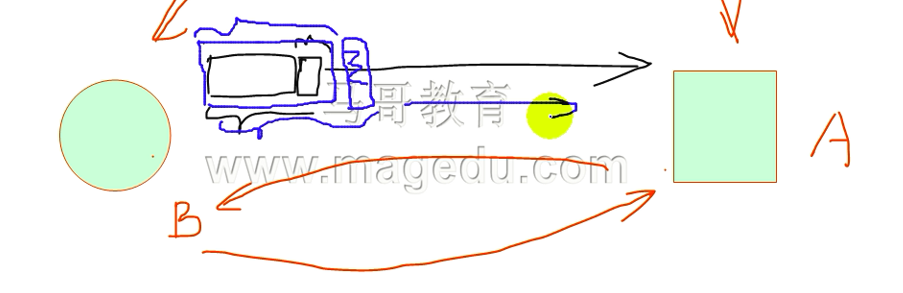 马哥教育
www.magedu.com
A
B